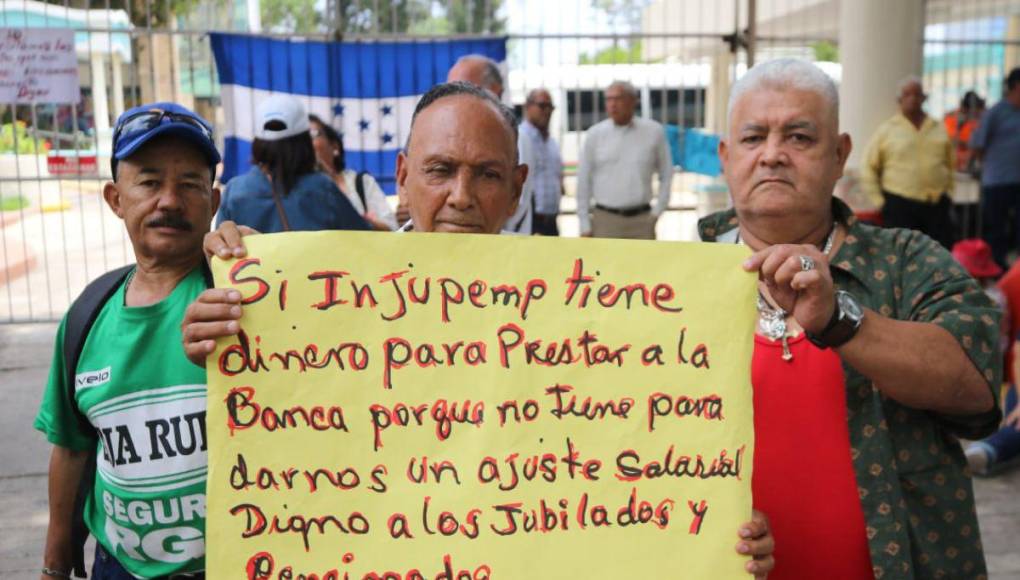 Si Injupemp tiene
dinero para Prestar a la
Banca porque no tiene para
darnos un ajuste salarial
Digno a los Jubilados y
Pensionados
SEGUR